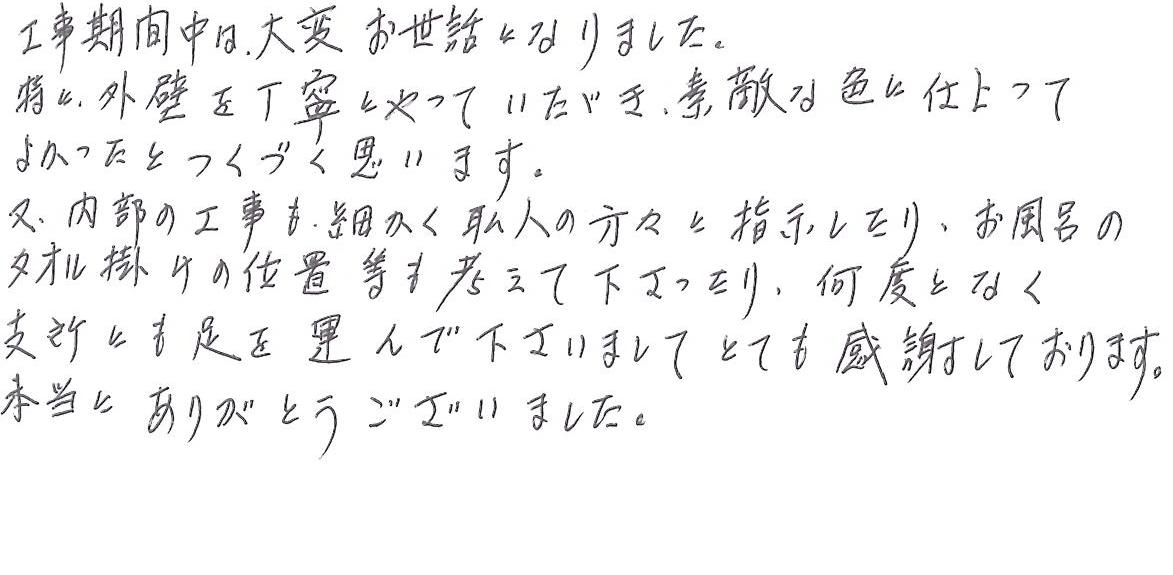 工事期間中は、大変お世話になりました。
特に、外壁を丁寧にやっていただき、素敵な色に仕上って
よかったとつくづく思います。
又、内部の工事も、細かく職人の方々に指示したり、お風呂の
タオル掛けの位置等も考えて下さったり、何度となく
支所にも足を運んで下さいましてとても感謝しております。
本当にありがとうございました。